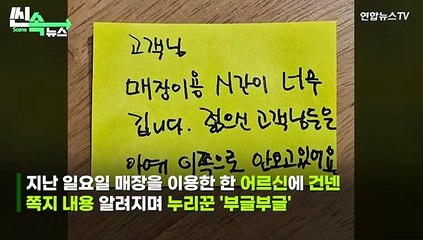 씬속뉴스
Scene
연합뉴스TV
고객님
매장이용 시간이 너무
깁니다. 젊으신 고객님들은
아예 이쪽으로 안오고있어요
지난 일요일 매장을 이용한 한 어르신에 건넨
쪽지 내용 알려지며 누리꾼 '부글부글'